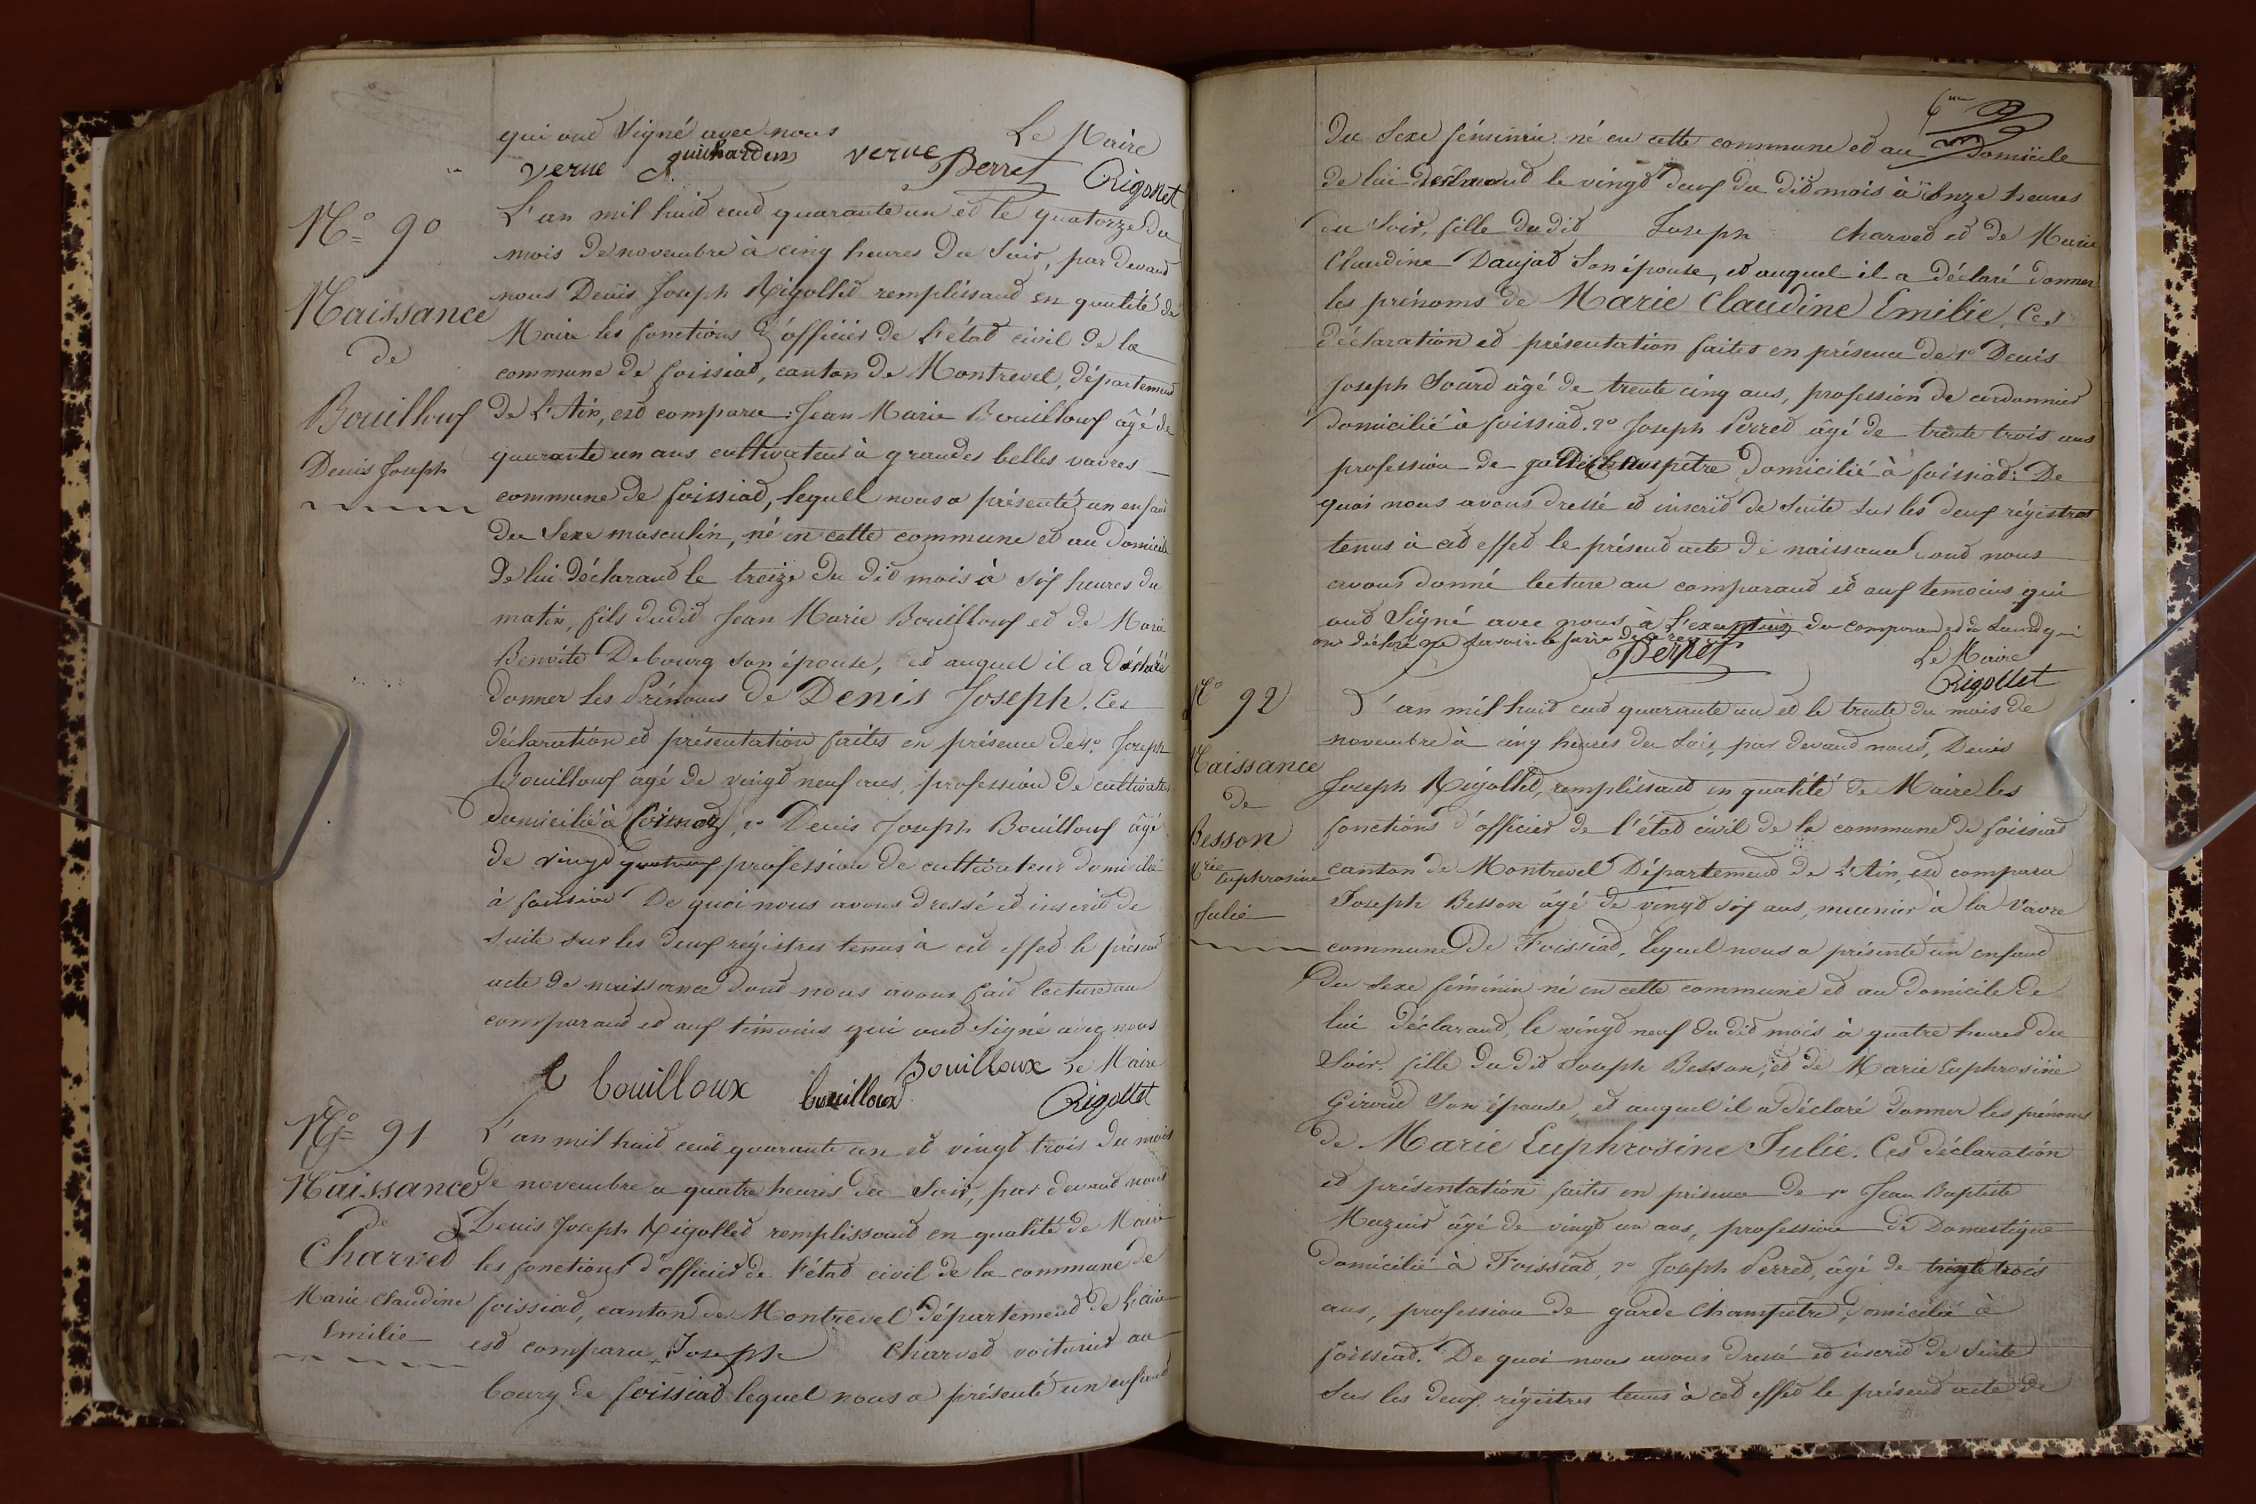 qui ont signé avec nous Le Maire
verne guichardon verne Perret Rigollet
N.o 90
Naissance
de
Bouilloux
Denis Joseph
L'an mil huit cent quarante un et le quatorze du
mois de novembre à cinq heures du soir, par devant
nous Denis Joseph Rigollet remplissant en qualité de
Maire les fonctions d'officier de l'état civil de la
commune de foissiat, canton de Montrevel, département
de L'Ain, est comparu Jean Marie Bouilloux âgé de
quarante un ans cultivateur à grandes belles vavres
commune de foissiat, lequel nous a présenté un enfant
du sexe masculin, né en cette commune et au domicile
de lui déclarant le treize du dit mois à six heures du
matin, fils dudit Jean Marie Bouilloux et de Marie
Benoite Debourg son épouse, et auquel il a déclaré
donner les Prénoms de Denis Joseph. Ces
déclaration et présentation faites en présence de 1.o Joseph
Bouilloux âgé de vingt neuf ans, profession de cultivateur
domicilié à 2o Denis Joseph Bouilloux âgé
de vingt profession de cultivateur domicilié
à foissiat De quoi nous avons dressé et inscrit de
suite sur les deux régistres tenus à cet effet le présent
acte de naissance dont nous avons fait lecture au
comparant et aux témoins qui ont signé avec nous
bouilloux bouilloux Bouilloux Le Maire
Rigollet
N.o 91
Naissance
de
Charvet
Marie Claudine
Emilie
L'an mil huit cent quarante un et vingt trois du mois
de novembre a quatre heures du soir, par devant nous
Denis Joseph Rigollet remplissant en qualité de Maire
les fonctions d'officier de l'état civil de la commune de
foissiat, canton de Montrevel département de L'ain
est comparu Joseph Charvet voiturier au
bourg de foissiat lequel nous a présenté un enfant
du sexe féminin né en cette commune et au domicile
de lui déclarant le vingt deux du dit mois à onze heures
du soir, fille du dit Joseph Charvet et de Marie
Claudine Daujat son épouse, et auquel il a déclaré donner
les prénoms de Marie Claudine Emilie. Ces
déclaration et présentation faites en présence de 1o Denis
Joseph Sourd âgé de trente cinq ans, profession de cordonnier
domicilié à foissiat. 2o Joseph Perret âgé de trente trois ans
profession de garde Champêtre domicilié à foissiat. De
quoi nous avons dressé et inscrit de suite sur les deux régistres
tenus à cet effet le présent acte de naissance dont nous
avons donné lecture au comparant et aux temoins qui
ont signé avec nous à l'exception du comparant et du Sourd qui
ont déclaré ne savoir le faire de ce requis
Perret Le Maire
Rigollet
N.o 92
Naissance
de
Besson
Mrie Euphrosine
Julie
L'an mil huit cent quarante un et le trente du mois de
novembre à cinq heures du soir, par devant nous, Denis
Joseph Rigollet, remplissant en qualité de Maire les
fonctions d'officier de l'état civil de la commune de foissiat
canton de Montrevel Département de L'Ain, est comparu
Joseph Besson âgé de vingt six ans, meunier à la Vavre
commune de Foissiat, lequel nous a présenté un enfant
du sexe féminin né en cette commune et au domicile de
lui déclarant, le vingt neuf du dit mois à quatre heures du
soir. fille du dit Joseph Besson, et de Marie Euphrosine
Giroud son épouse, et auquel il a déclaré donner les prénoms
de Marie Euphrosine Julie. Ces déclaration
et présentation faites en présence de 1o Jean Baptiste
Mazuir âgé de vingt un ans, profession de Domestique
domicilié à Foissiat, 2o Joseph Perret, âgé de trente trois
ans, profession de garde Champetre, domicilié à
foissiat. De quoi nous avons dressé et inscrit de suite
sur les deux régistres tenus à cet effet le présent acte de